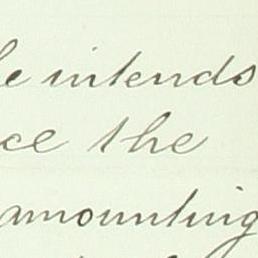 he intends
ce the
amounting